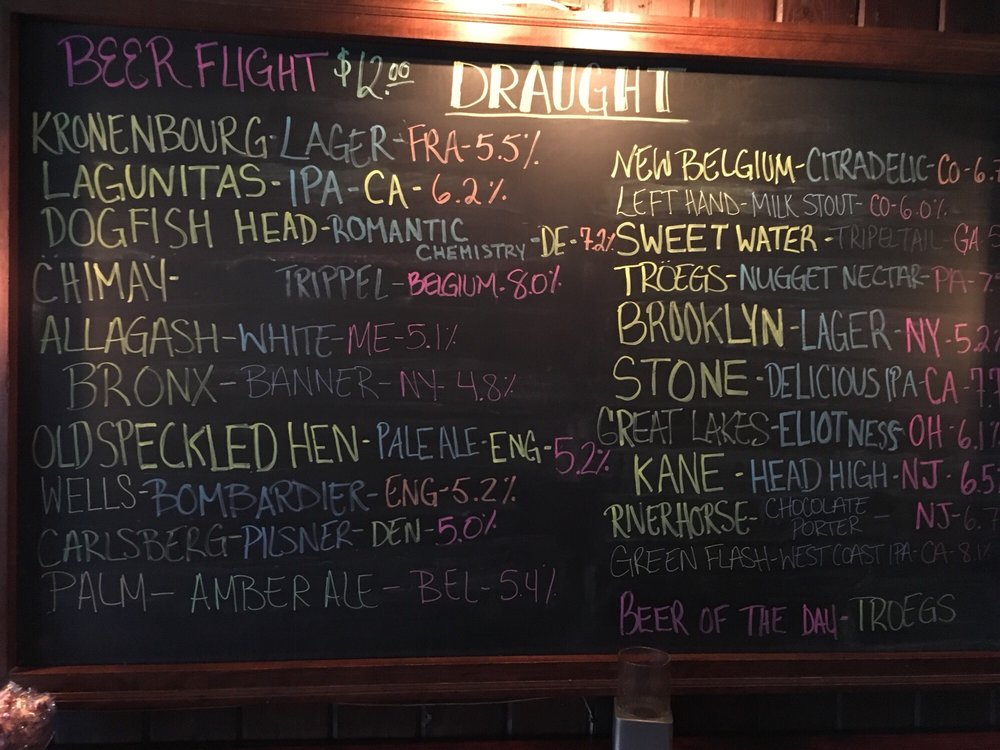 BEER FLIGHT $12.00
DRAUGHT
KRONENBOURG-LAGER-FRA-5.5%
LAGUNITAS-IPA-CA-6.2%
DOGFISH HEAD-ROMANTIC CHEMISTRY-DE-7.2%
CHIMAY- TRIPPEL-BELGIUM-8.0%
ALLAGASH-WHITE-ME-5.1%
BRONX-BANNER-NY-4.8%
OLD SPECKLED HEN-PALE ALE-ENG-5.2%
WELLS-BOMBARDIER-ENG-5.2%
CARLSBERG-PILSNER-DEN-5.0%
PALM-AMBER ALE-BEL-5.4%
NEW BELGIUM-CITRADELIC-CO-6.
LEFT HAND-MILK STOUT-CO-6.0%
SWEET WATER-TRIPELTAIL-GA
TRÖEGS-NUGGET NECTAR-PA-7.
BROOKLYN-LAGER-NY-5.2%
STONE-DELICIOUS IPA-CA-7.7
GREAT LAKES-ELIOT NESS-OH-6.1%
KANE-HEAD HIGH-NJ-6.5
RIVERHORSE-CHOCOLATE PORTER-NJ-6.7
GREEN FLASH-WEST COAST IPA-CA-8.1%
BEER OF THE DAY-TROEGS